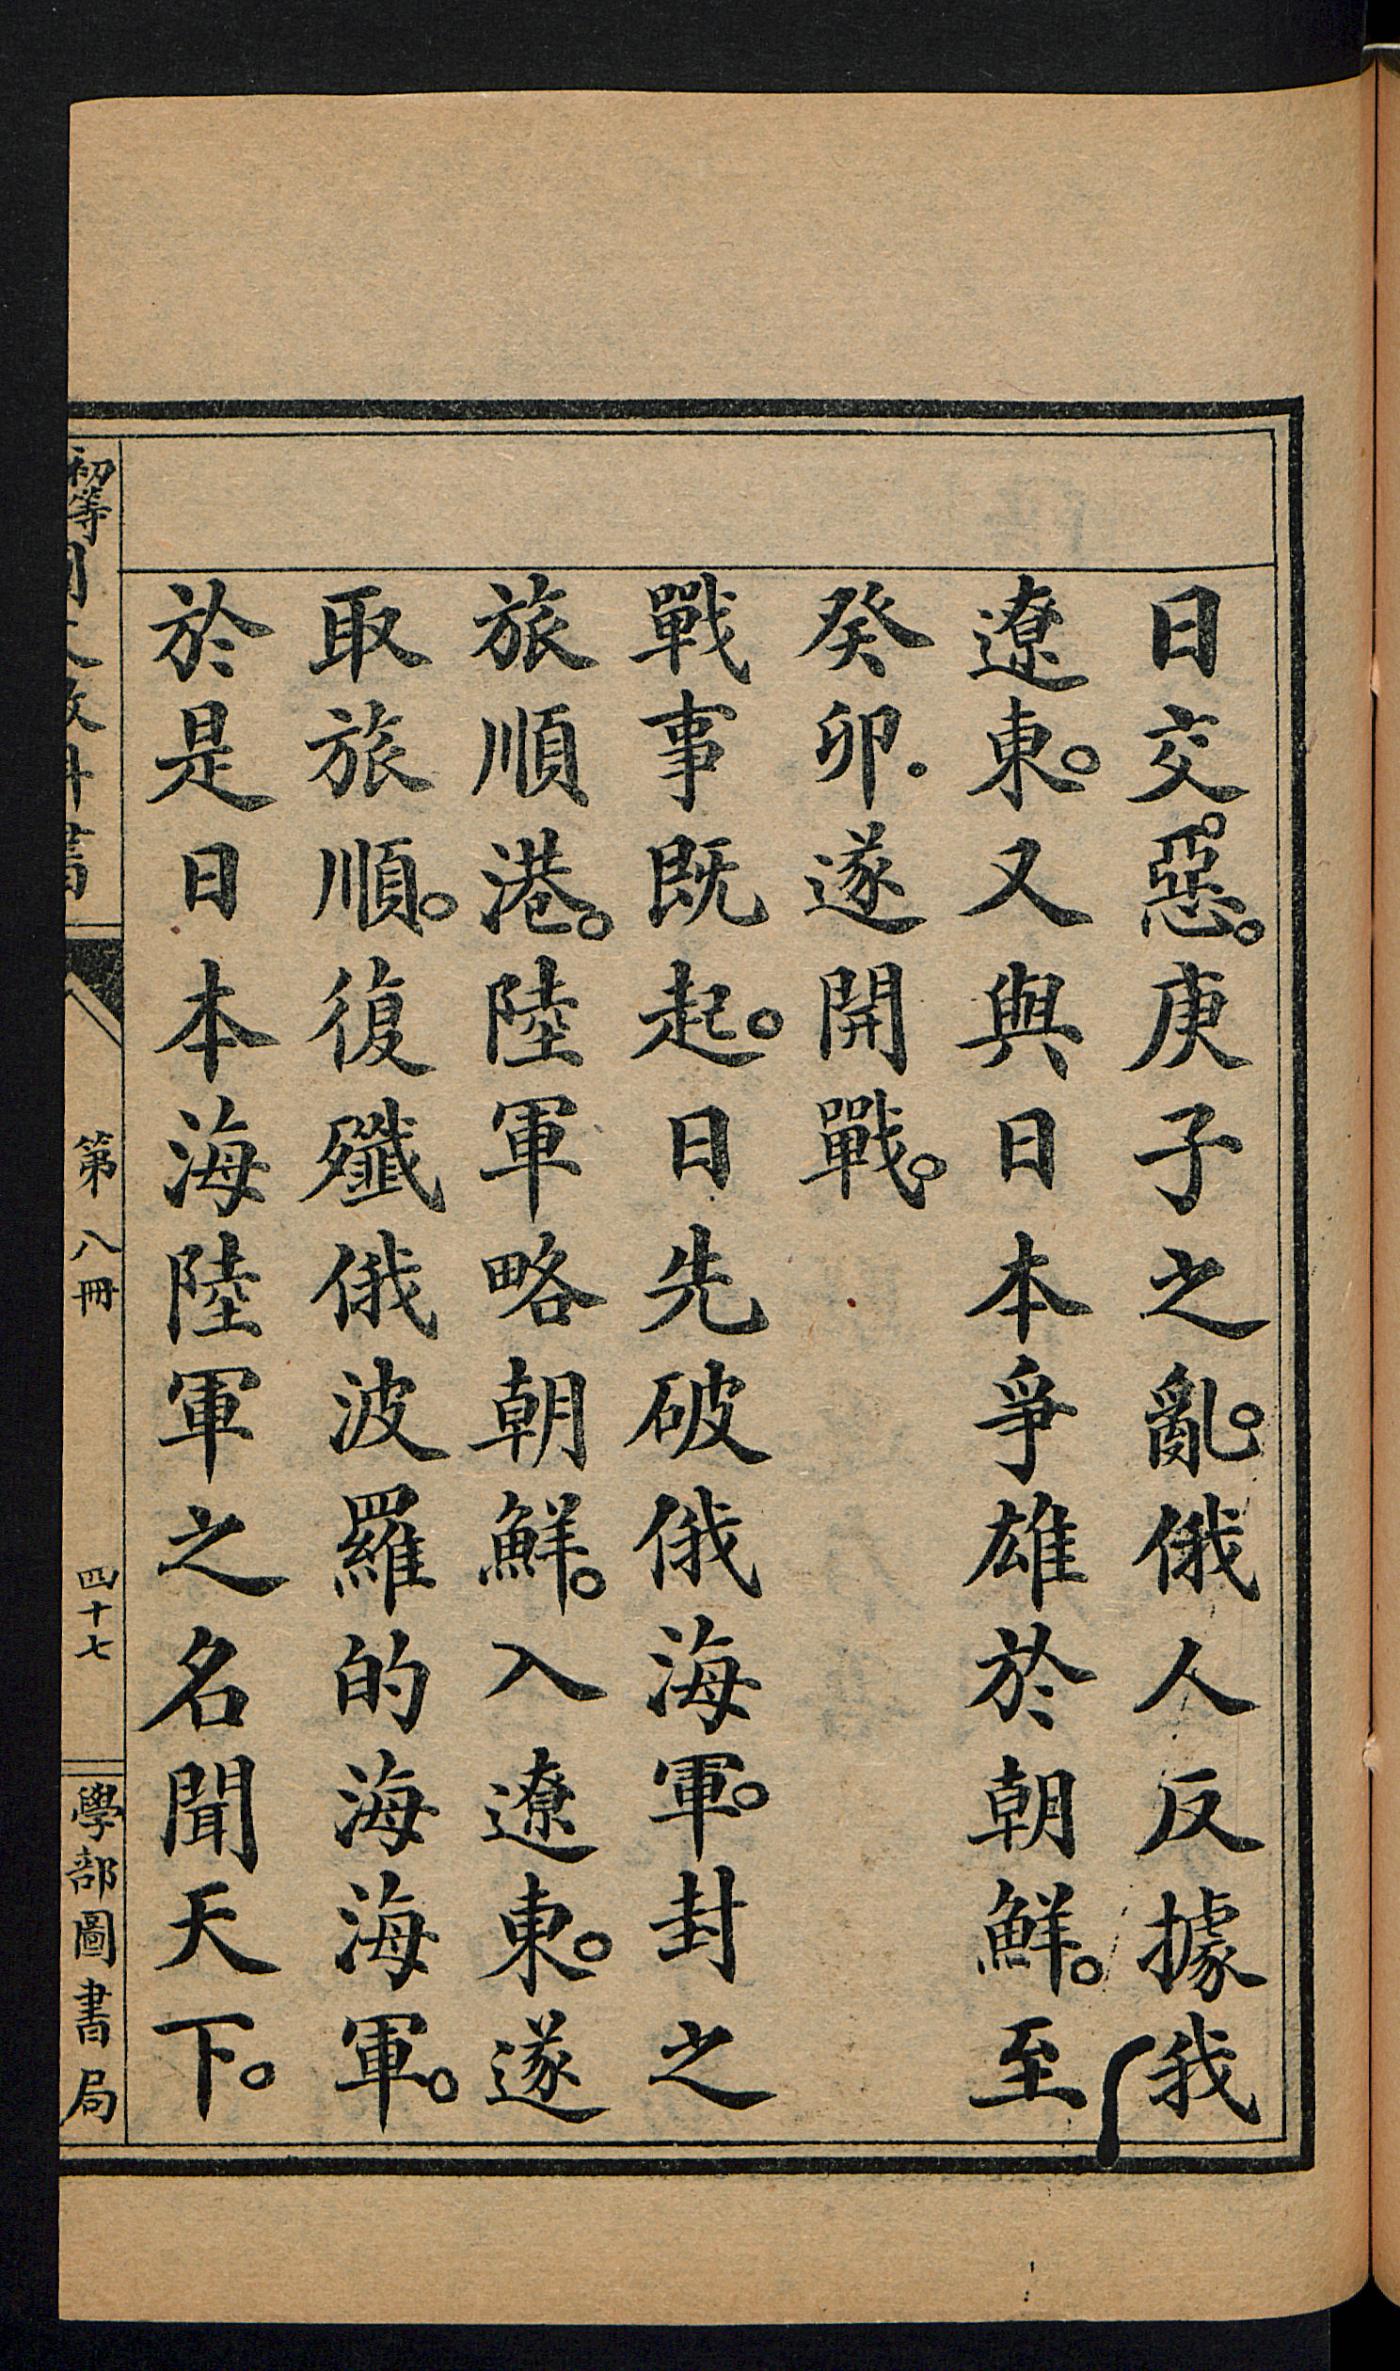 日交。惡。庚子之亂。俄人反據我
遼東。又與日本爭雄於朝鮮。至
癸卯.遂開戰。
戰事既起。日先破俄海軍。封之
旅順港。陸軍略朝鮮。入遼東。遂
取旅順。復殲俄波羅的海海軍。
於是日本海陸軍之名聞天下。
初等國文教科書
第八冊
四十七
學部圖書局